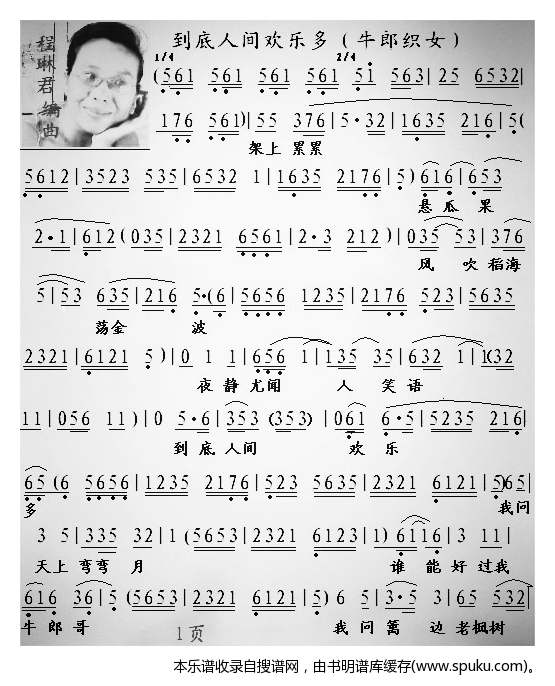 到底人间欢乐多（牛郎织女）
程琳君编曲
1/4 2/4
(561 561 561 561 51 5653 | 25 6532 |
176 561) | 55 376 | 5·32 | 1635 216 | 5(
架上 累累
5612 | 3523 535 | 6532 1 | 1635 2176 | 5) | 616 | 653
悬瓜 果
2·1 | 612 (035 | 2321 6561 | 2·3 212) | 035 53 | 376
风 吹稻海
5 | 53 635 | 216 5·(6 | 5656 1235 | 2176 523 | 5635
荡金 波
2321 | 6121 5) | 0 1 1 | 656 1 | 135 35 | 632 1 | 1(32
夜静尤闻 人 笑语
11 | 056 11) | 0 5·6 | 353 (353) | 061 6·5 | 5235 216 |
到底人间 欢乐
65 (6 5656 | 1235 2176 | 523 5635 | 2321 6121 | 5)65 |
多 我问
3 5 | 335 32 | 1 (5653 | 2321 6123 | 1) 6116 | 3 11 |
天上弯弯 月 谁能好过我
616 36 | 5 (5653 | 2321 6121 | 5) 6 5 | 3·5 3 | 65 532
牛郎哥 我问篱 边老枫树
1页
本乐谱收录自搜谱网，由书明谱库缓存(www.spuku.com)。